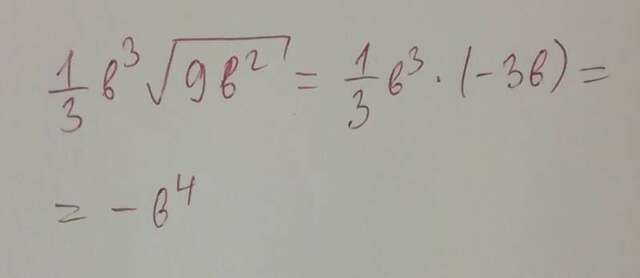 1/3 в³ √(9в²) = 1/3 в³ · (-3в) =
= -в⁴